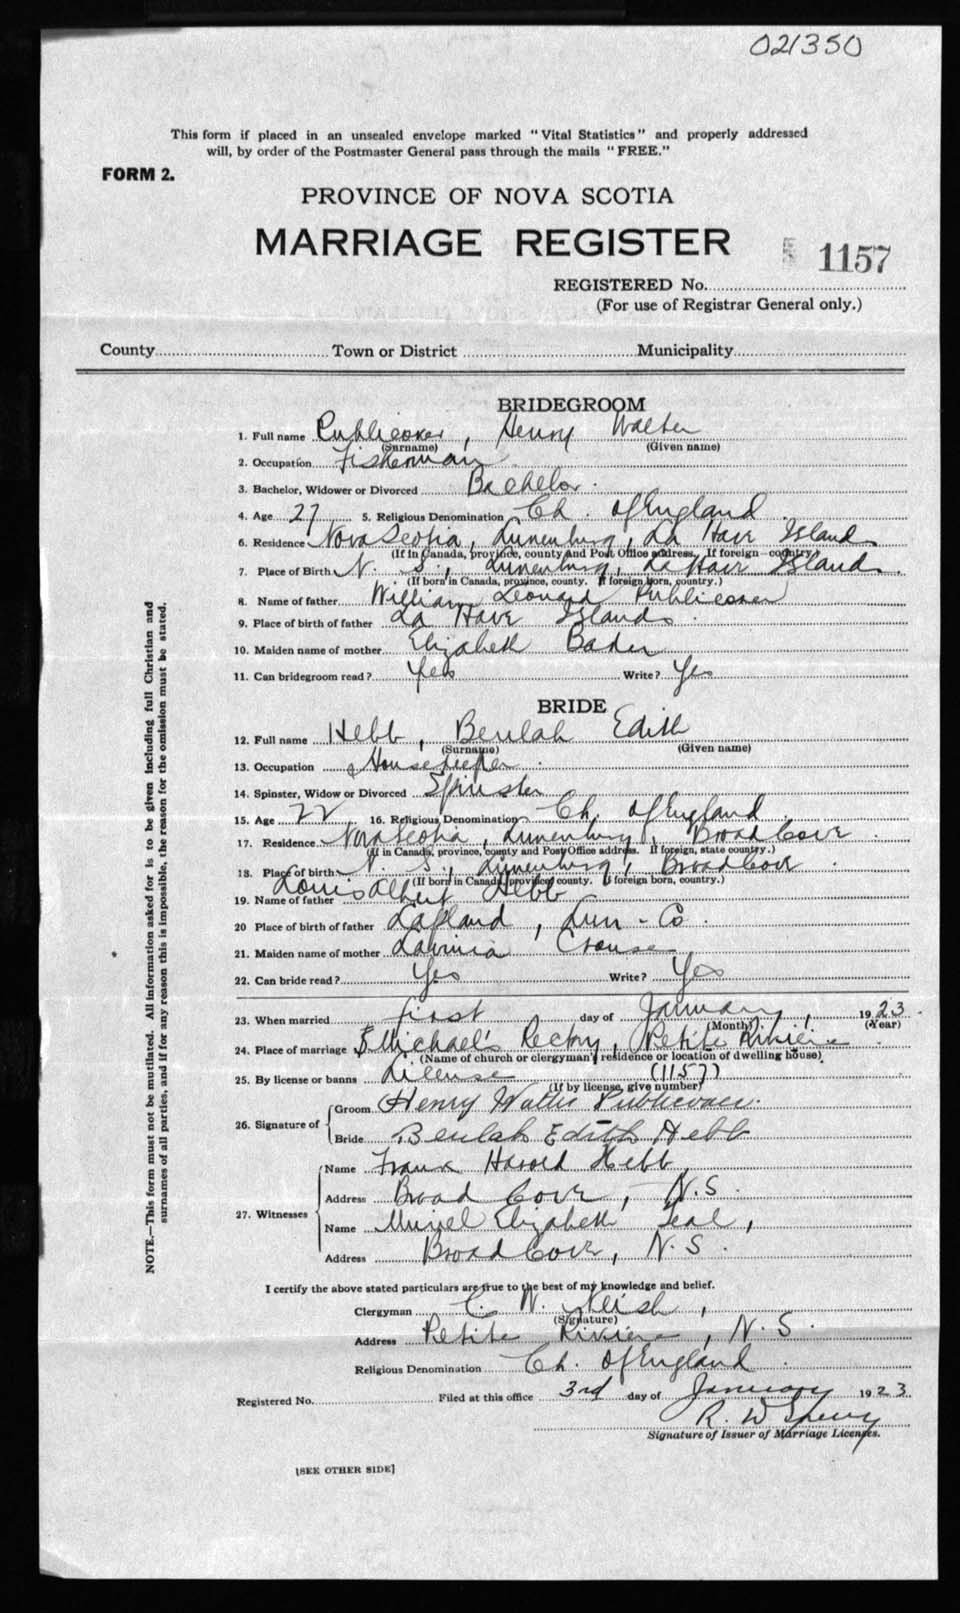 021350
This form if placed in an unsealed envelope marked "Vital Statistics" and properly addressed
will, by order of the Postmaster General pass through the mails "FREE."
FORM 2.
PROVINCE OF NOVA SCOTIA
MARRIAGE REGISTER
1157
REGISTERED No.
(For use of Registrar General only.)
County Town or District Municipality
BRIDEGROOM
1. Full name Publicover, Henry Walter
(Surname) (Given name)
2. Occupation Fisherman
3. Bachelor, Widower or Divorced Bachelor.
4. Age 27 5. Religious Denomination Ch. of England
6. Residence Nova Scotia, Lunenburg, La Have Island
(If in Canada, province, county and Post Office address. If foreign—country)
7. Place of Birth N. S., Lunenburg, La Have Island.
(If born in Canada, province, county. If foreign born, country.)
8. Name of father William Leonard Publicover
9. Place of birth of father La Have Islands.
10. Maiden name of mother Elizabeth Baker
11. Can bridegroom read? Yes Write? Yes
BRIDE
12. Full name Hebb, Beulah Edith
(Surname) (Given name)
13. Occupation Housekeeper.
14. Spinster, Widow or Divorced Spinster
15. Age 22 16. Religious Denomination Ch. of England
17. Residence Nova Scotia, Lunenburg, Broad Cove.
(If in Canada, province, county and Post Office address. If foreign, state country.)
18. Place of birth N. S., Lunenburg, Broad Cove.
(If born in Canada, province, county. If foreign born, country.)
19. Name of father Louis Albert Hebb
20 Place of birth of father Lapland, Lun - Co.
21. Maiden name of mother Lavinia Crouse
22. Can bride read? Yes Write? Yes
23. When married first day of January, 1923.
(Month) (Year)
24. Place of marriage St Michael's Rectory, Petite Riviere.
(Name of church or clergyman's residence or location of dwelling house)
25. By license or banns License (1157)
(If by license, give number)
26. Signature of Groom Henry Walter Publicover.
Bride Beulah Edith Hebb
27. Witnesses Name Frank Harold Hebb,
Address Broad Cove, N.S.
Name Muriel Elizabeth Teal,
Address Broad Cove, N.S.
I certify the above stated particulars are true to the best of my knowledge and belief.
Clergyman C. W. Neish,
(Signature)
Address Petite Riviere, N.S.
Religious Denomination Ch. of England.
Registered No. Filed at this office 3rd day of January 1923
R. W.
Signature of Issuer of Marriage Licenses.
[SEE OTHER SIDE]
NOTE.—This form must not be mutilated. All information asked for is to be given including full Christian and
surnames of all parties, and if for any reason this is impossible, the reason for the omission must be stated.